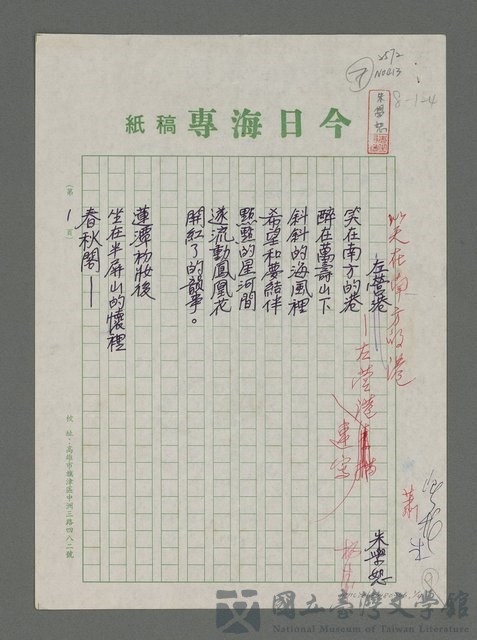 2512
No613
8-124
今日海專稿紙
朱學恕
笑在南方的港
——左營港
左營港——
速寫
朱學恕
笑在南方的港
醉在萬壽山下
斜斜的海風裡
希望和夢結伴
點點的星河間
遂流動鳳凰花
開紅了的韻事。
蓮潭初妝後
坐在半屏山的懷裡
春秋閣——
第1頁
校址：高雄市旗津區中洲三路四八二號
蕭
國立臺灣文學館
National Museum of Taiwan Literature